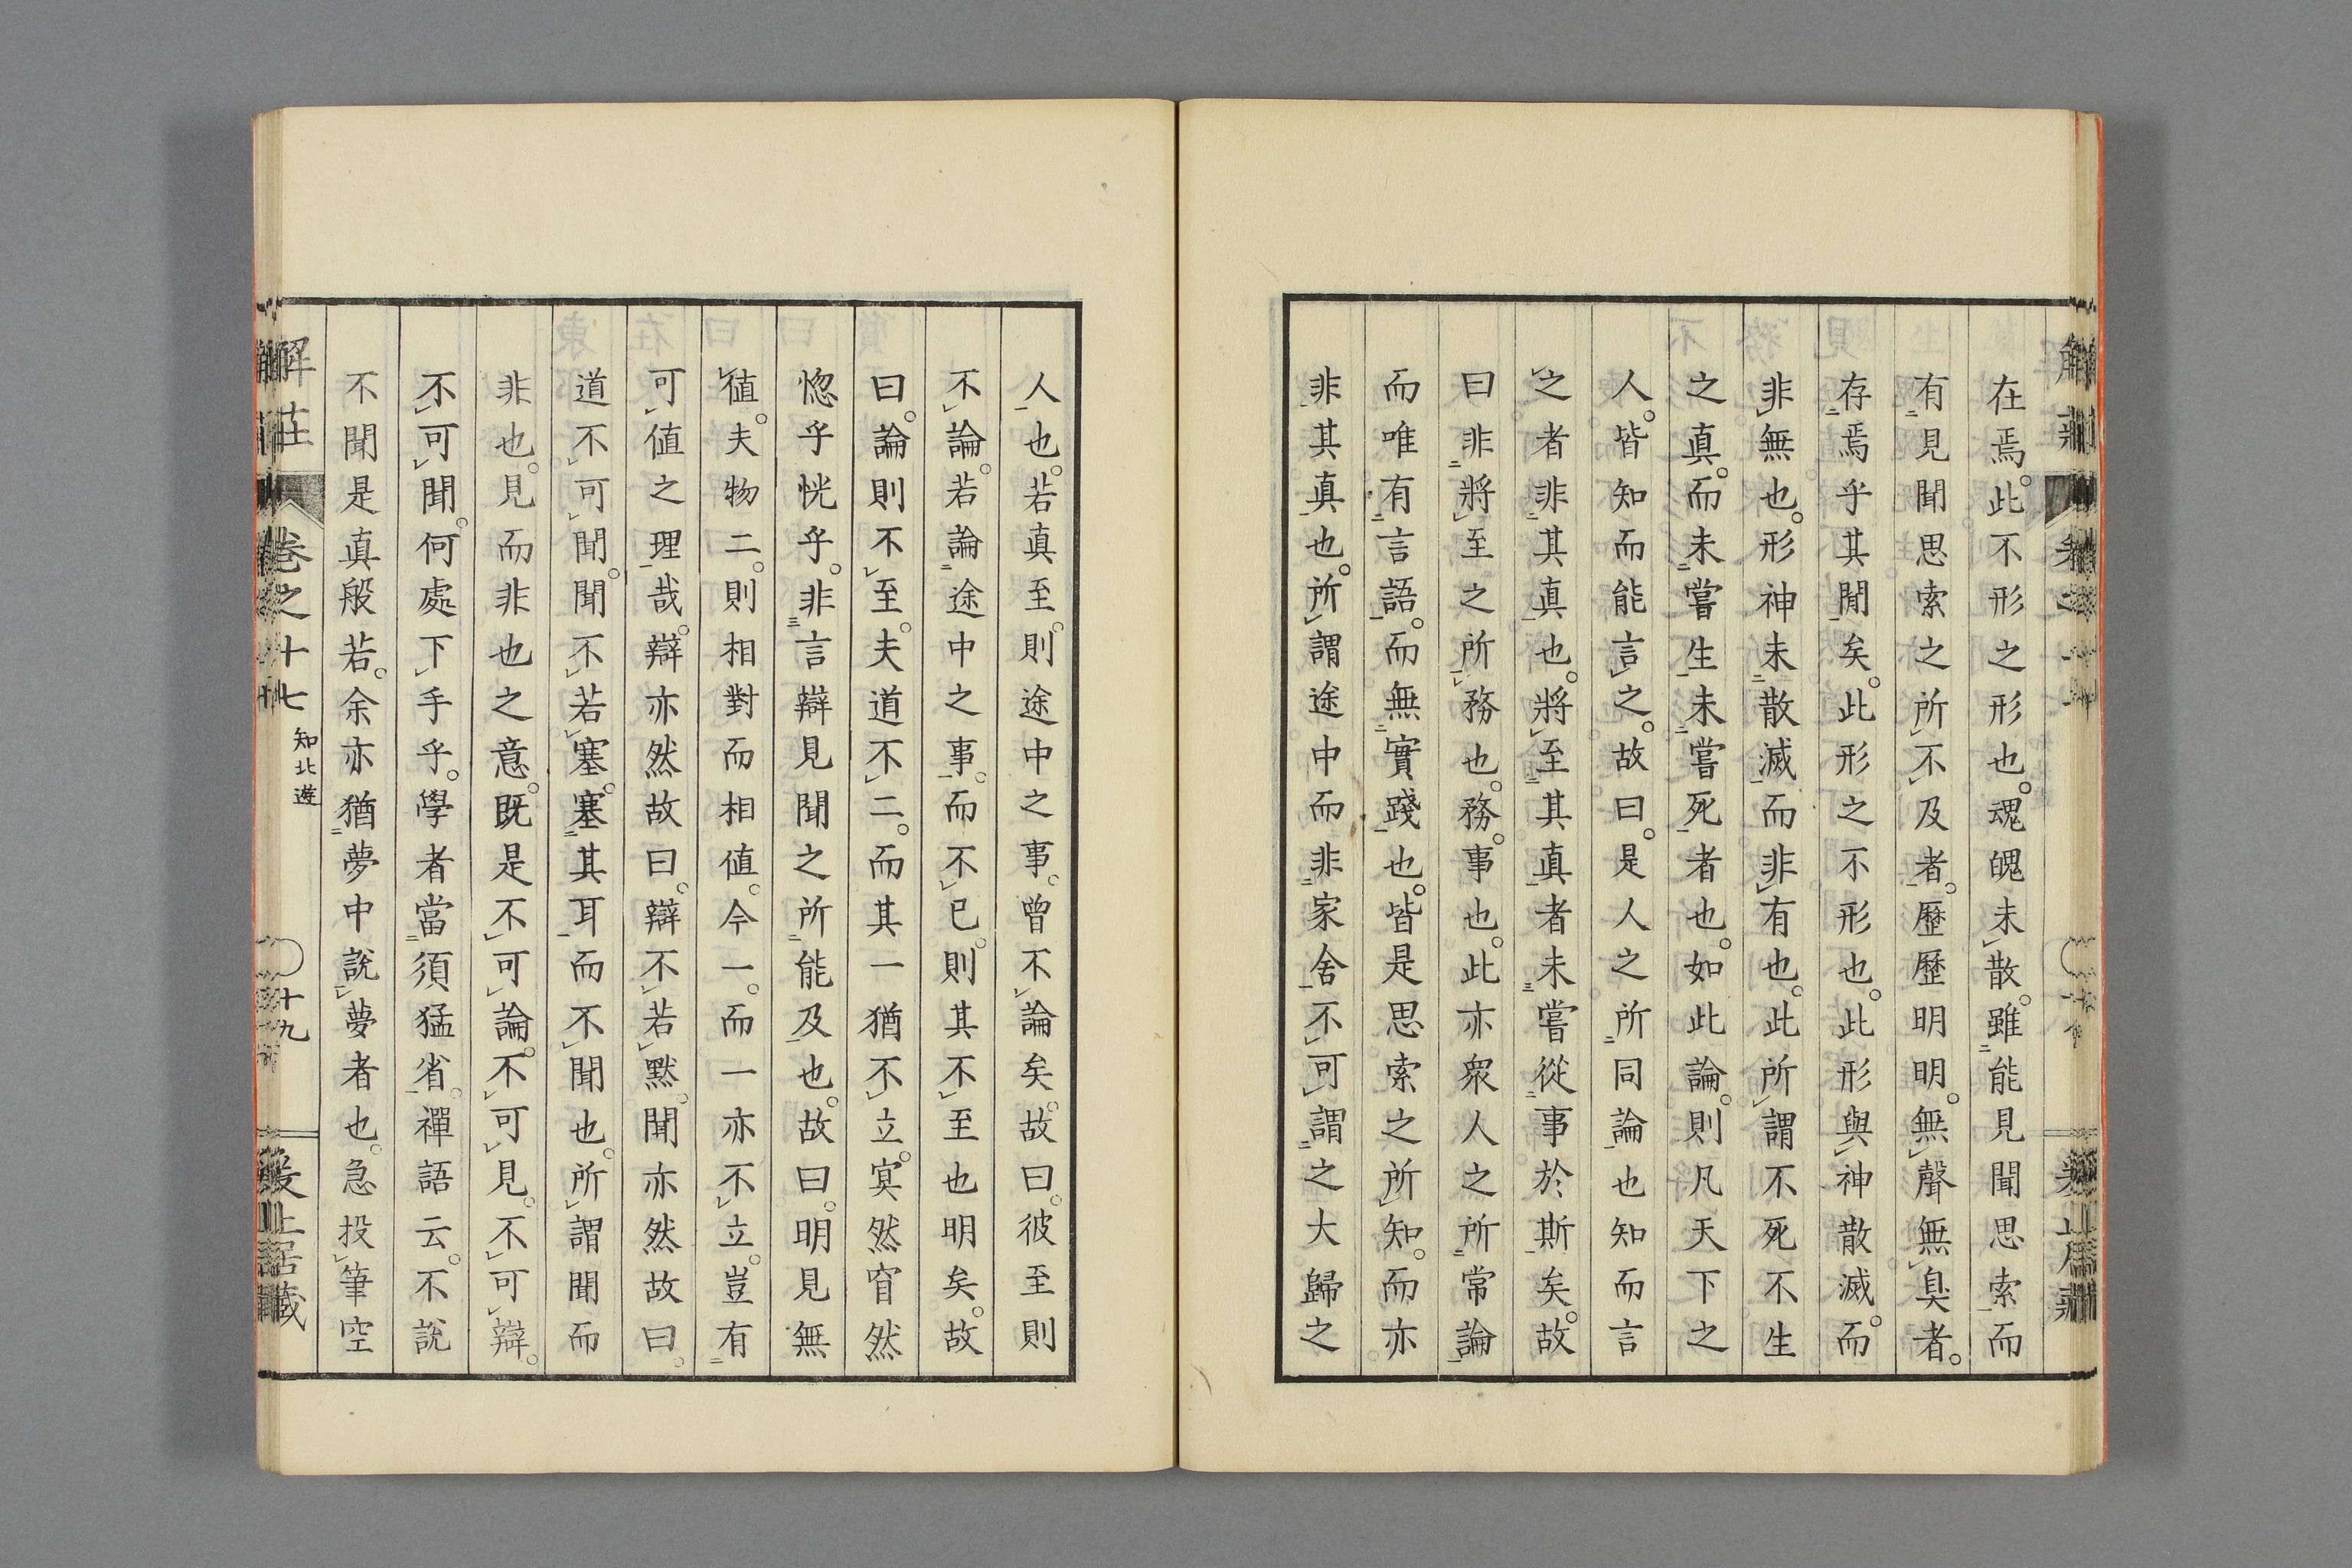 在焉。此不形之形也。魂魄未散。雖能見聞思索而
有見聞思索之所不及者。歷歷明明。無聲無臭者。
存焉乎其閒矣。此形之不形也。此形與神散滅。而
非無也。形神未散滅而非有也。此所謂不死不生
之真。而未嘗生未嘗死者也。如此論。則凡天下之
人。皆知而能言之。故曰。是人之所同論也知而言
之者非其真也。將至其真者未嘗從事於斯矣。故
曰非將至之所務也。務。事也。此亦衆人之所常論
而唯有言語。而無實踐也。皆是思索之所知。而亦
非其真也。所謂途中而非家舍不可謂之大歸之
人也。若真至。則途中之事。曾不論矣。故曰。彼至則
不論。若論途中之事。而不已。則其不至也明矣。故
曰。論則不至。夫道不二。而其一猶不立。冥然窅然
惚乎恍乎。非言辯見聞之所能及也。故曰。明見無
値。夫物二。則相對而相値。今一。而一亦不立。豈有
可値之理哉。辯亦然故曰。辯不若默。聞亦然故曰。
道不可聞。聞不若塞。塞其耳而不聞也。所謂聞而
非也。見而非也之意。既是不可論。不可見。不可辯。
不可聞。何處下手乎。學者當須猛省。禪語云。不說
不聞是真般若。余亦猶夢中說夢者也。急投筆空
解莊
卷之十七 知北遊
十九